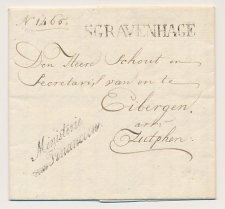 No 1466.
SGRAVENHAGE
Den Heere Schout en
Secretaris van en te
Eibergen
over
Zutphen
Ministerie
van Binnenl.